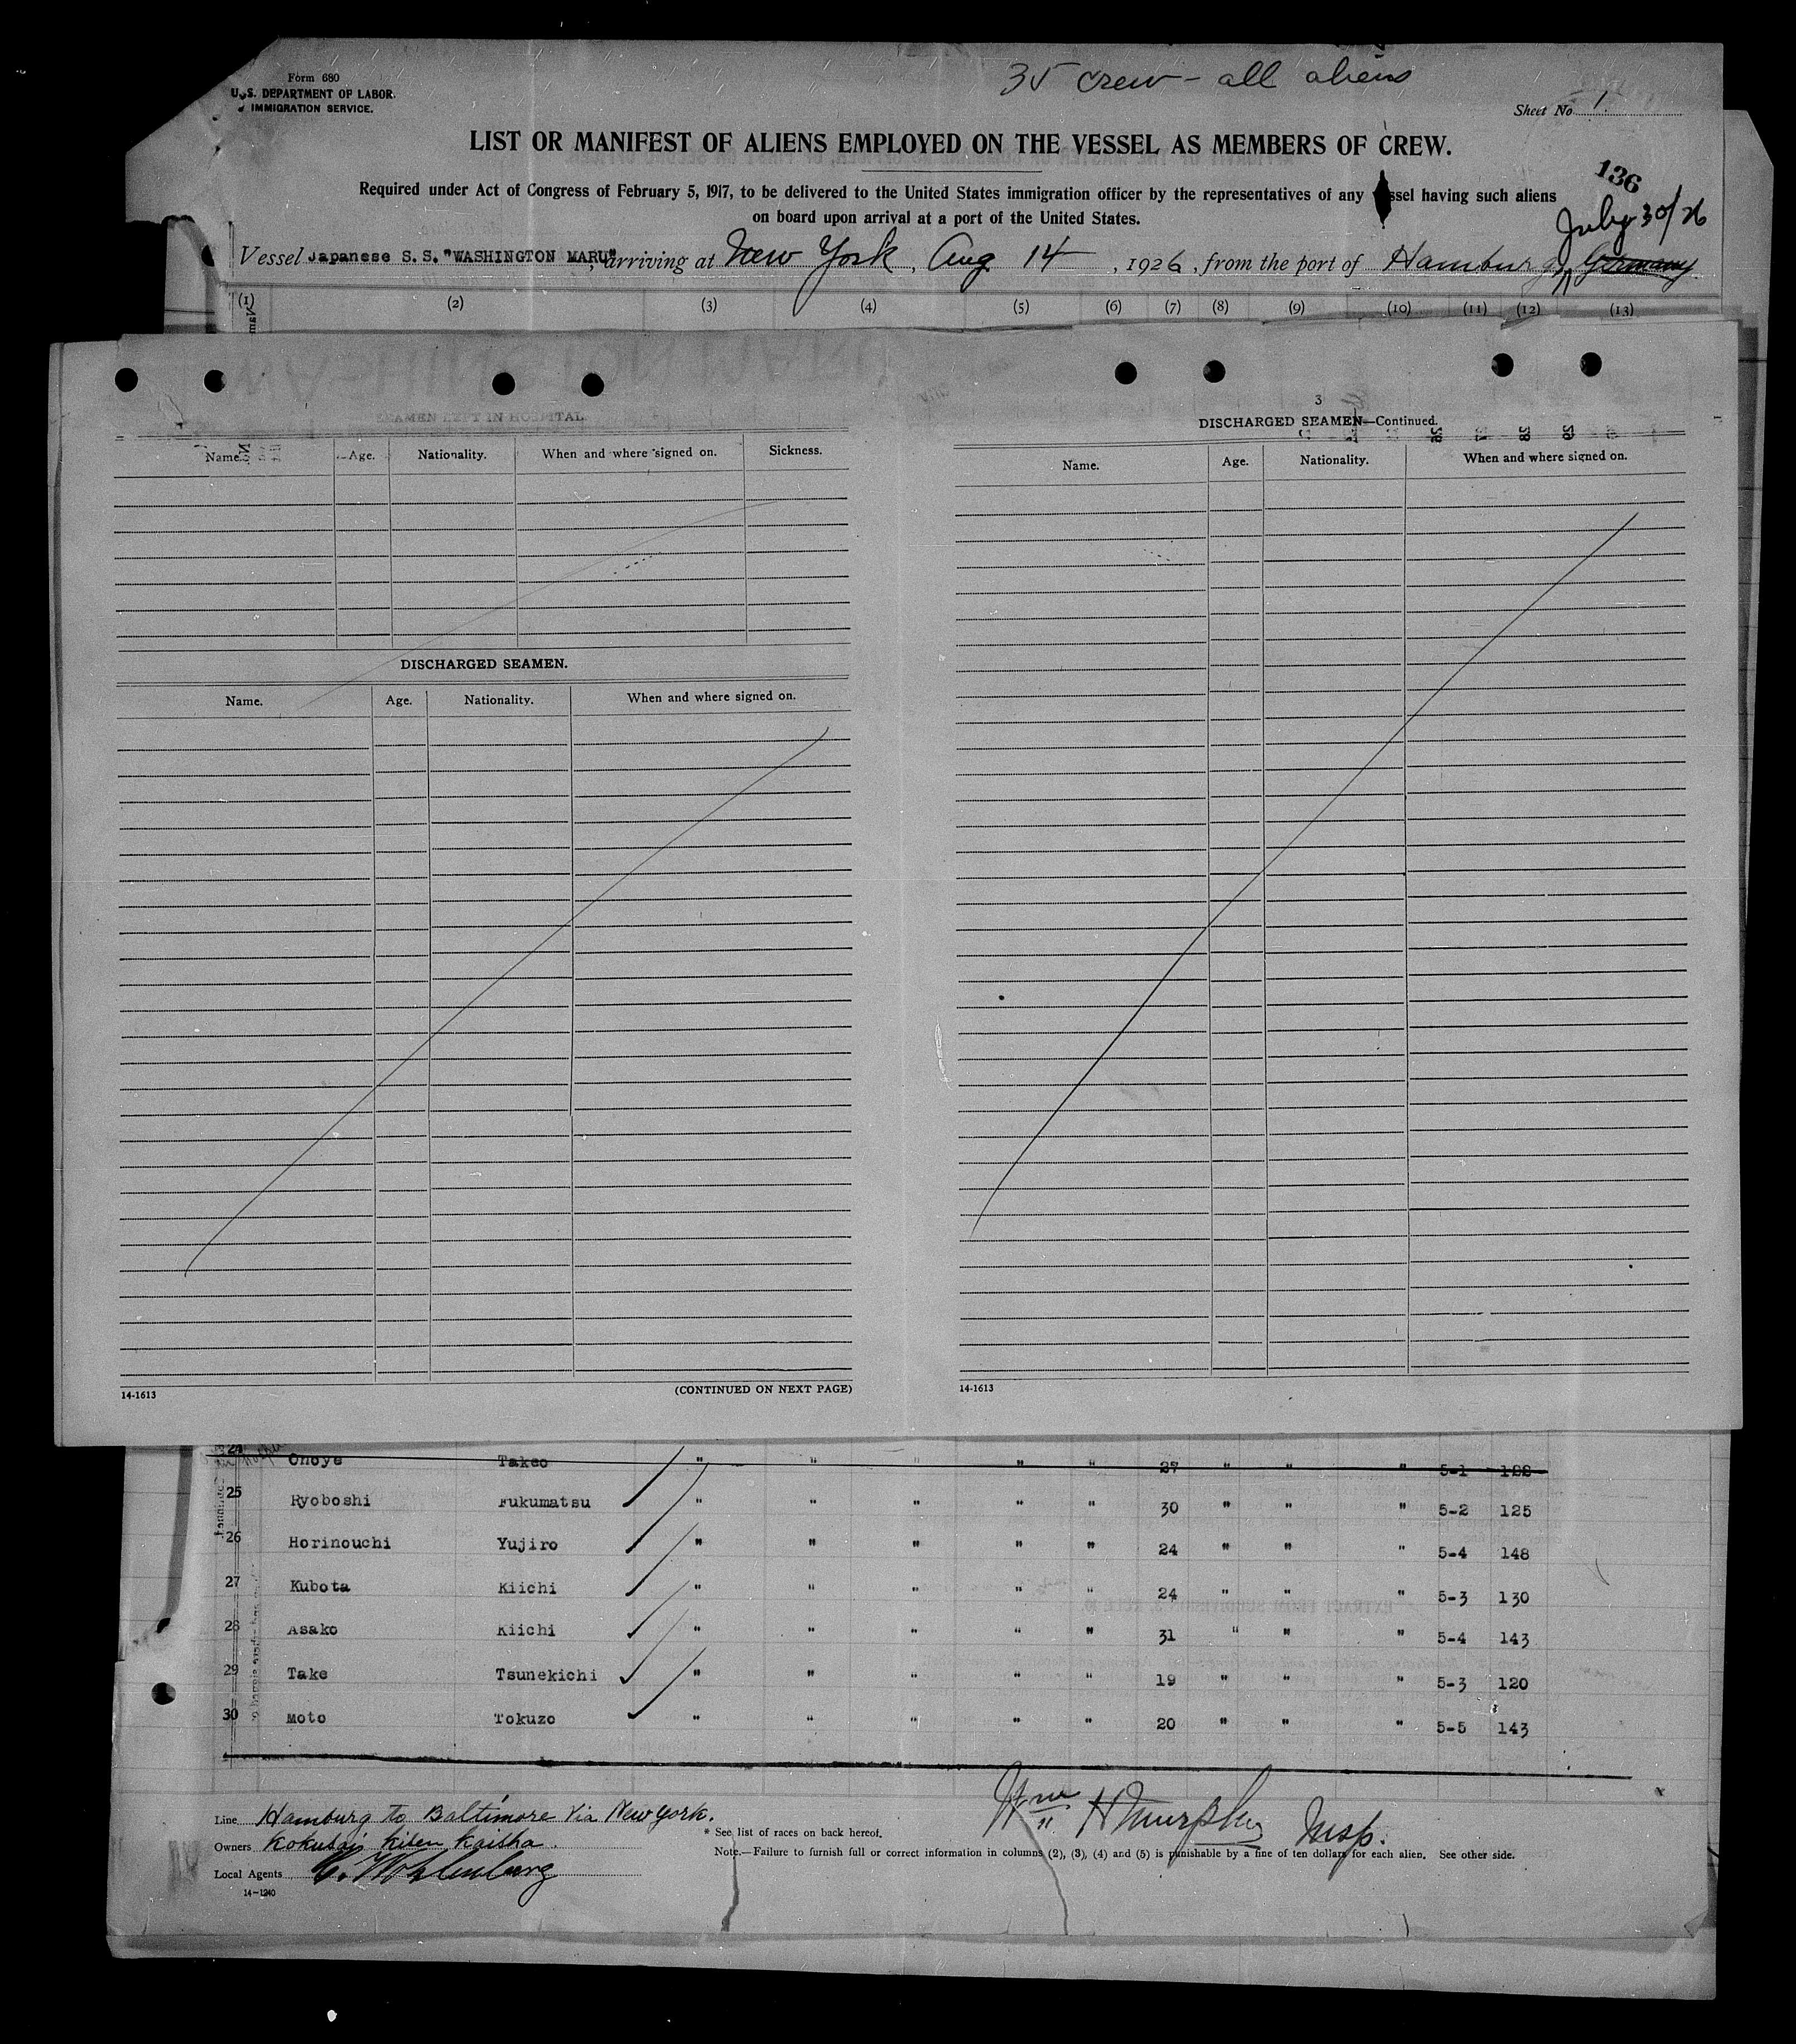 35 crew - all aliens
Form 680
U.S. DEPARTMENT OF LABOR.
IMMIGRATION SERVICE.
Sheet No. 1.
LIST OR MANIFEST OF ALIENS EMPLOYED ON THE VESSEL AS MEMBERS OF CREW.
136
Required under Act of Congress of February 5, 1917, to be delivered to the United States immigration officer by the representatives of any vessel having such aliens
on board upon arrival at a port of the United States.
July 30/26
Vessel Japanese S.S. "WASHINGTON MARU", arriving at New York, Aug 14, 1926, from the port of Hamburg, Germany
(1) (2) (3) (4) (5) (6) (7) (8) (9) (10) (11) (12) (13)
SEAMEN LEFT IN HOSPITAL.
Name. Age. Nationality. When and where signed on. Sickness.
DISCHARGED SEAMEN.
Name. Age. Nationality. When and where signed on.
14-1613 (CONTINUED ON NEXT PAGE)
3
DISCHARGED SEAMEN—Continued.
Name. Age. Nationality. When and where signed on.
14-1613
24 Onoye Takeo " " " " " 27 " " " 5-1 122
25 Ryoboshi Fukumatsu " " " " " 30 " " " 5-2 125
26 Horinouchi Yujiro " " " " " 24 " " " 5-4 148
27 Kubota Kiichi " " " " " 24 " " " 5-3 130
28 Asako Kiichi " " " " " 31 " " " 5-4 143
29 Take Tsunekichi " " " " " 19 " " " 5-3 120
30 Moto Tokuzo " " " " " 20 " " " 5-5 143
Line Hamburg to Baltimore via New York.
Owners Kokusai Kisen Kaisha.
Local Agents
14-1240
Wm H Murphy Insp.
* See list of races on back hereof.
Note.—Failure to furnish full or correct information in columns (2), (3), (4) and (5) is punishable by a fine of ten dollars for each alien. See other side.